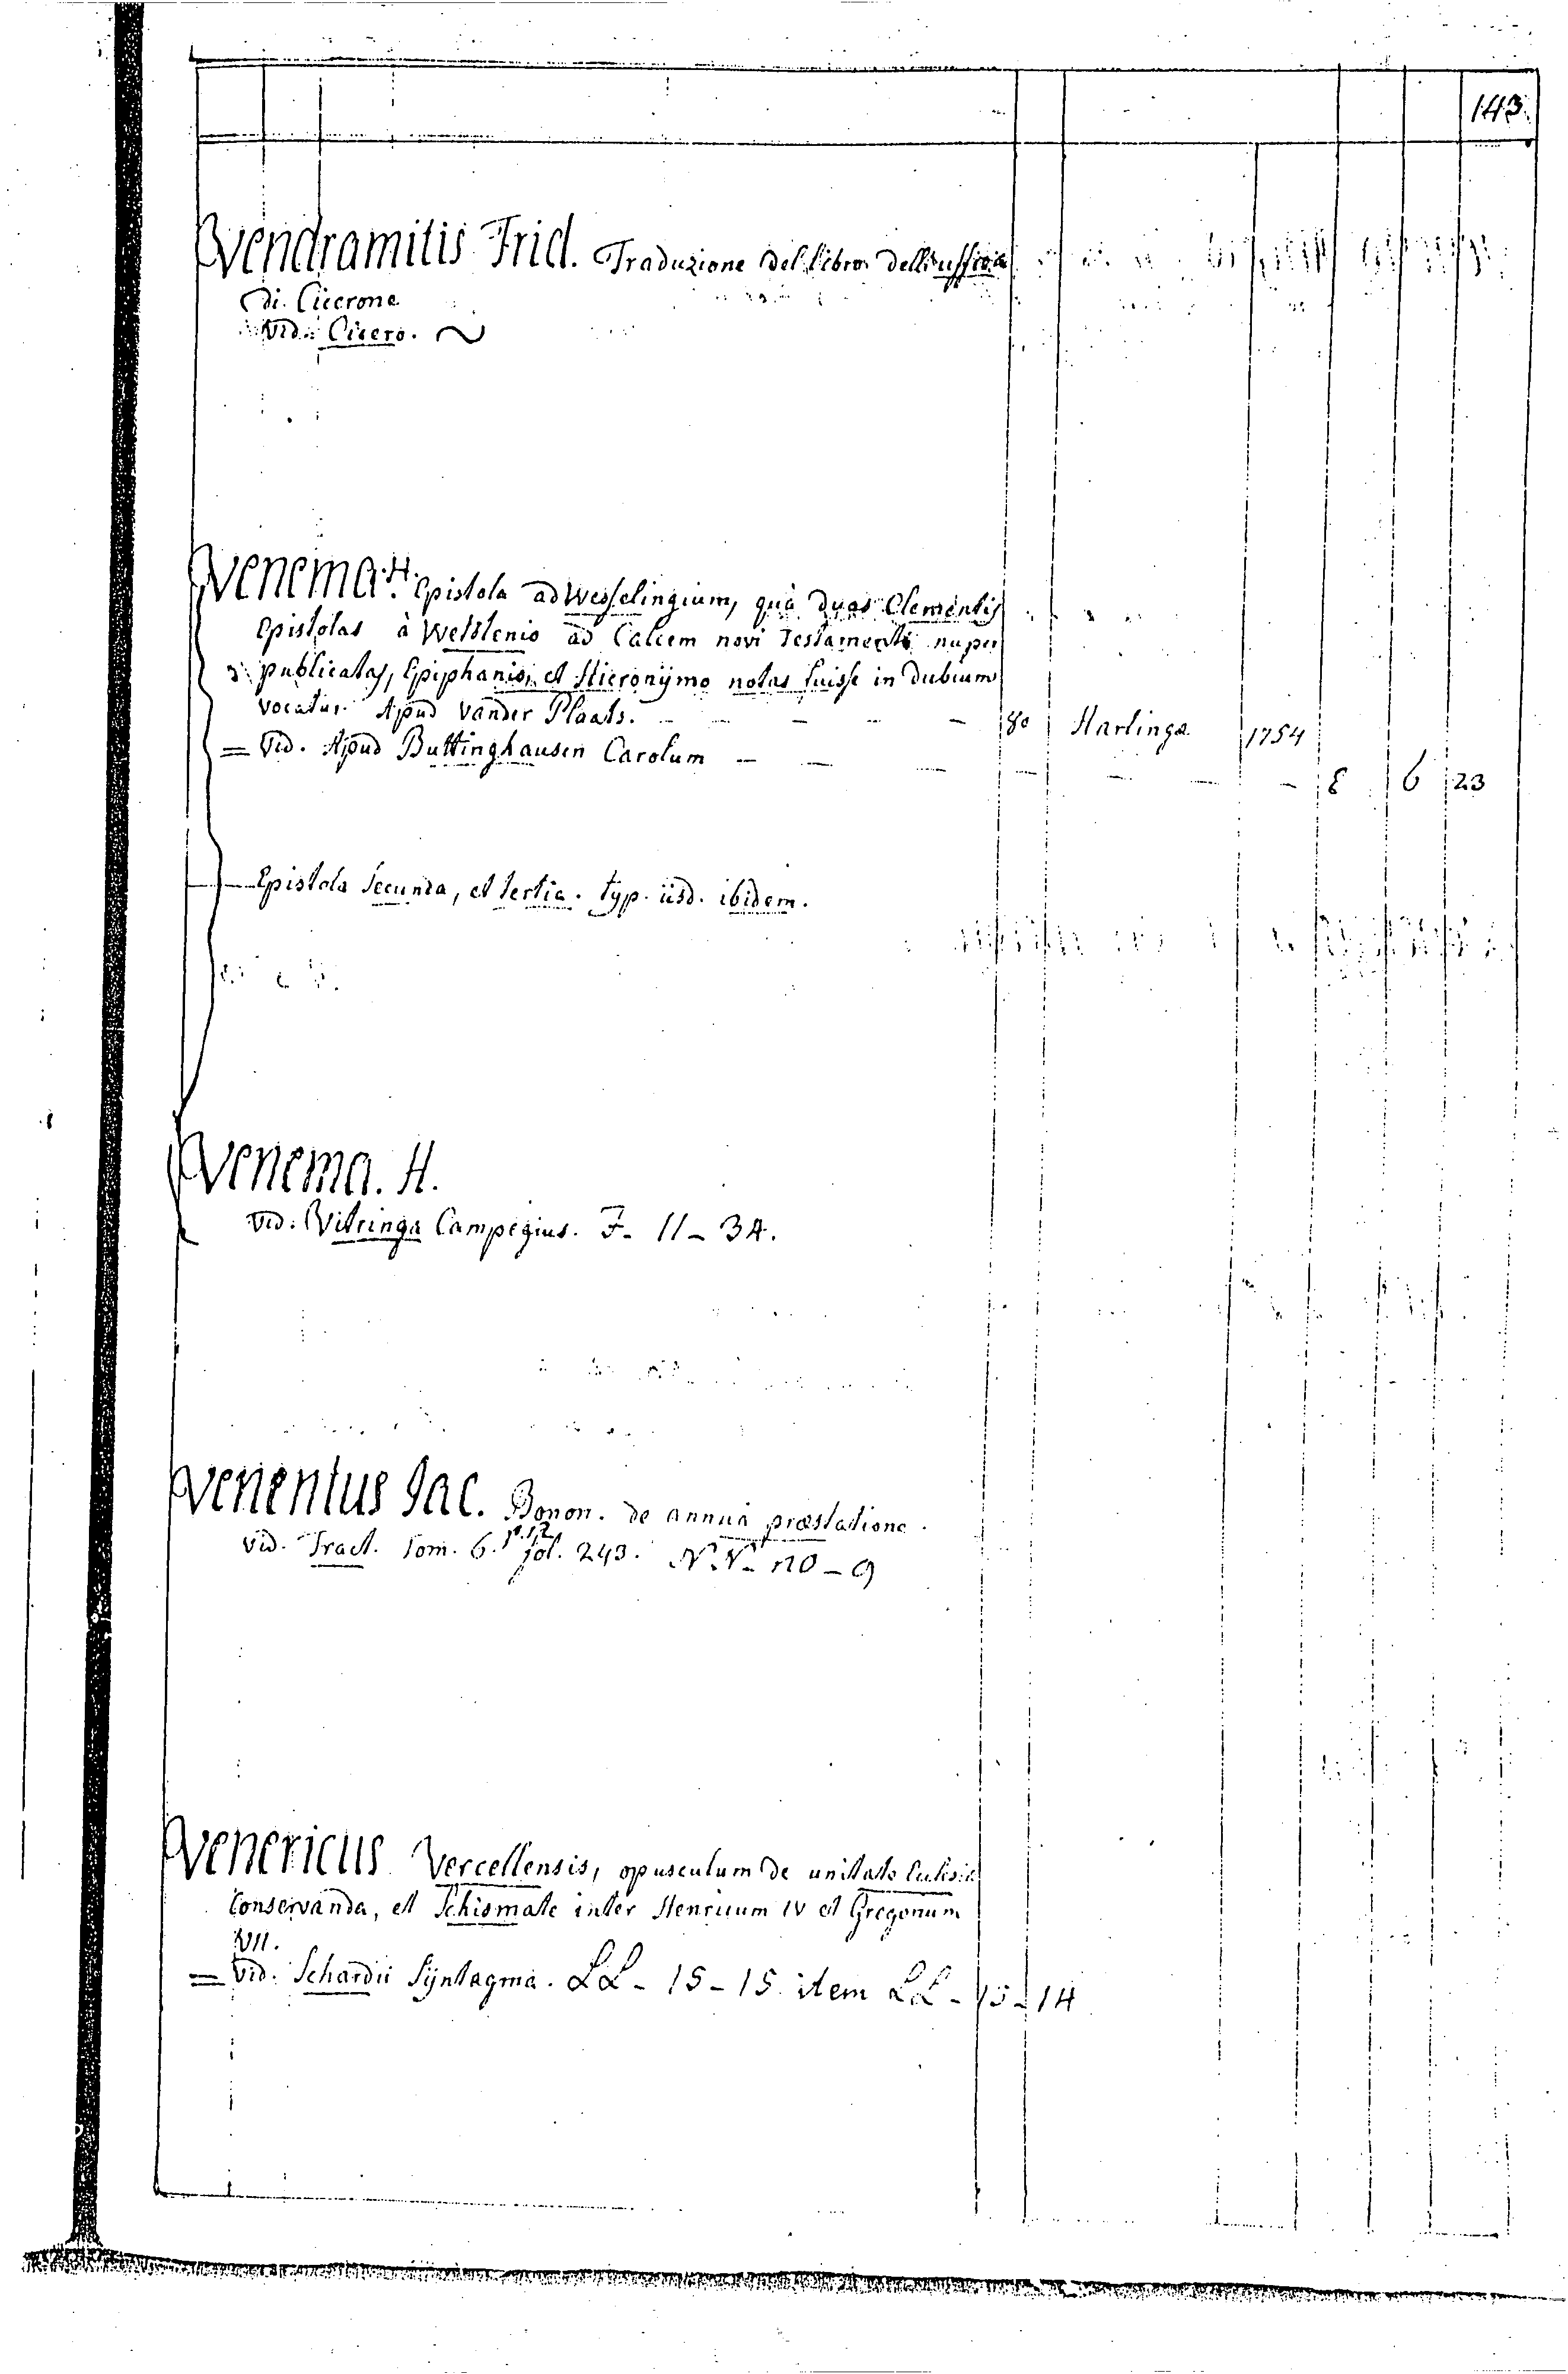 143.
Vendramitis Frid. Traduzione del libro dell'
di Cicerone
Vid. Cicero.
Venema. H. Epistola ad Wesselingium, quà duas Clementis
Epistolas à Wetstenio ad Calcem novi Testamenti nuper
publicatas, Epiphanio, et Hieronymo notas fuisse in dubium
vocatur. Apud vander Plaats. 8o Harlinga 1754
= Vid. Apud Buttinghausen Carolum — — — — — — — 8 6 23
— Epistola Secunda, et tertia. typ. iisd. ibidem.
Venema. H.
Vid. Vitringa Campegius. F. 11 - 34.
Venentus Jac. Bonon. de annuà præstatione.
Vid. Tract. Tom. 6. p. 1, 2 fol. 243. N.N. no - 9
Venericus Vercellensis, opusculum de unitate Eccles:æ
Conservanda, et Schismate inter Henricum IV et Gregorium
VII.
= Vid. Schardii Syntagma. LL - 15 - 15. item LL - 15 - 14